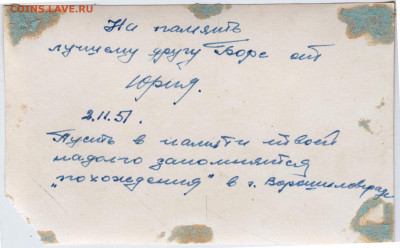 COINS.LAVE.RU
На память
лучшему другу Боре от
Юрия.
2.11.51.
Пусть в памяти твоей
надолго запомнятся
„похождения" в г. Ворошиловграде